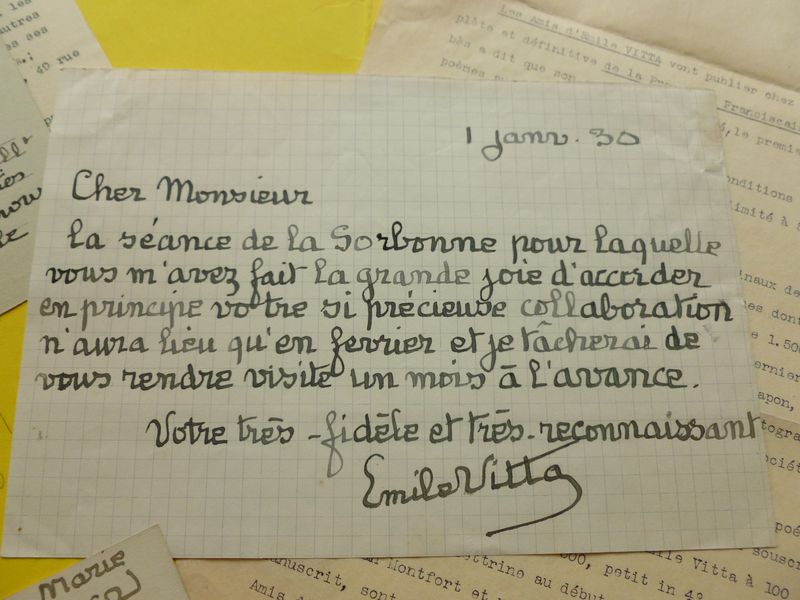 1 janv. 30
Cher Monsieur
la séance de la Sorbonne pour laquelle
vous m'avez fait la grande joie d'accorder
en principe votre si précieuse collaboration
n'aura lieu qu'en fevrier et je tâcherai de
vous rendre visite un mois à l'avance.
Votre très-fidèle et très-reconnaissant
Emile Vitta
les
autres
ses
40 rue
Les Amis d'Emile VITTA vont publier chez
plète et définitive de la
Franciscai
bàs a dit que son
poèmes
le premie
onditions
imité à
inaux de
dont
1.500
ernier
apon,
togra
ociét
poè
souscri
ile Vitta à 100
petit in 4
ettrine au début
anuscrit, sont
Montfort et
Amis
Marie